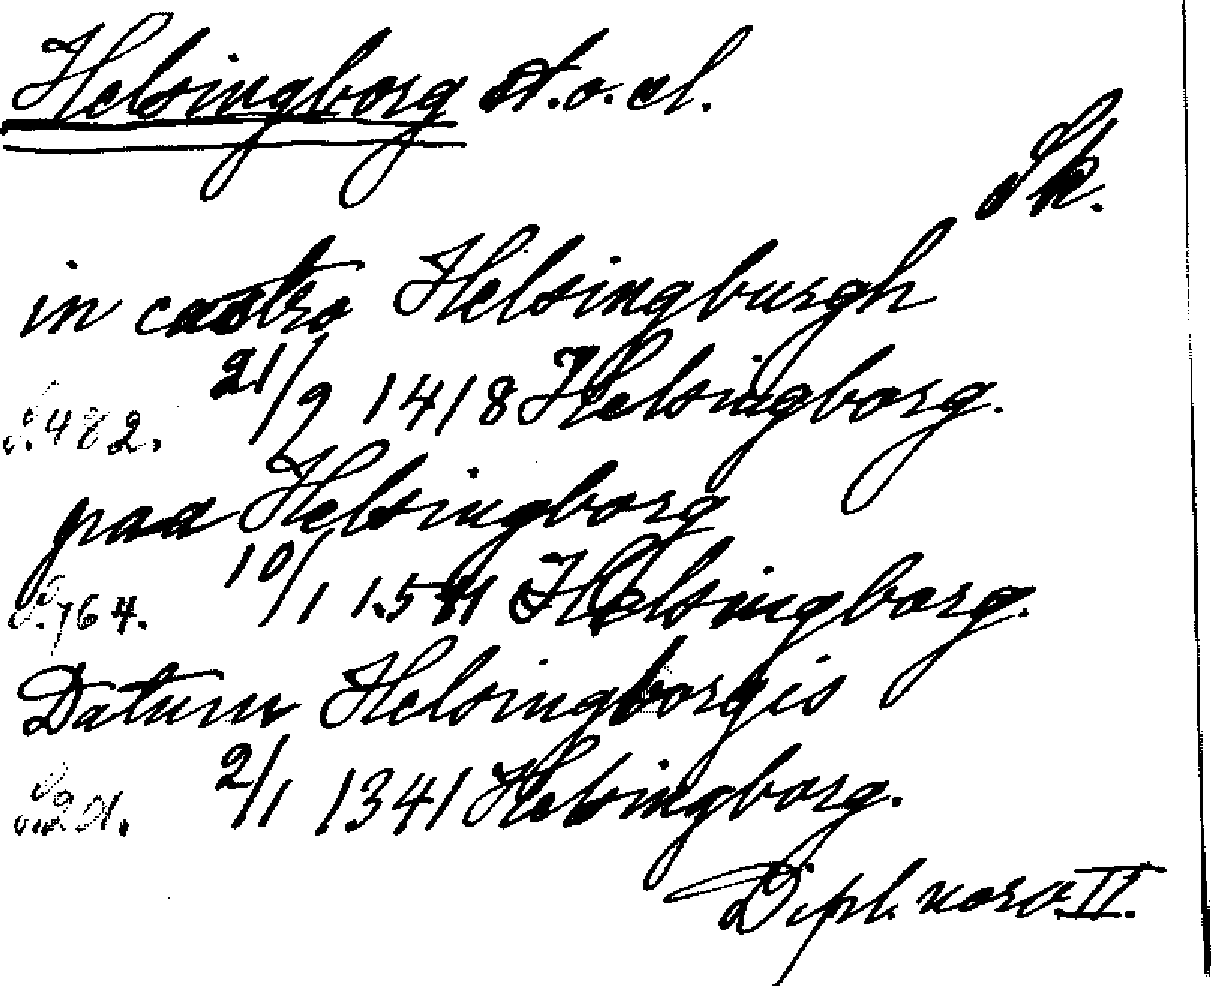 Helsingborg st. o. sl.
Sk.
in castro Helsingburgh
S. 482. 21/9 1418 Helsingborg.
paa Helsingborg
S. 764. 10/1 1.541 Helsingborg.
Datum Helsingborgis
S. 201. 2/1 1341 Helsingborg.
Dipl. norv. II.